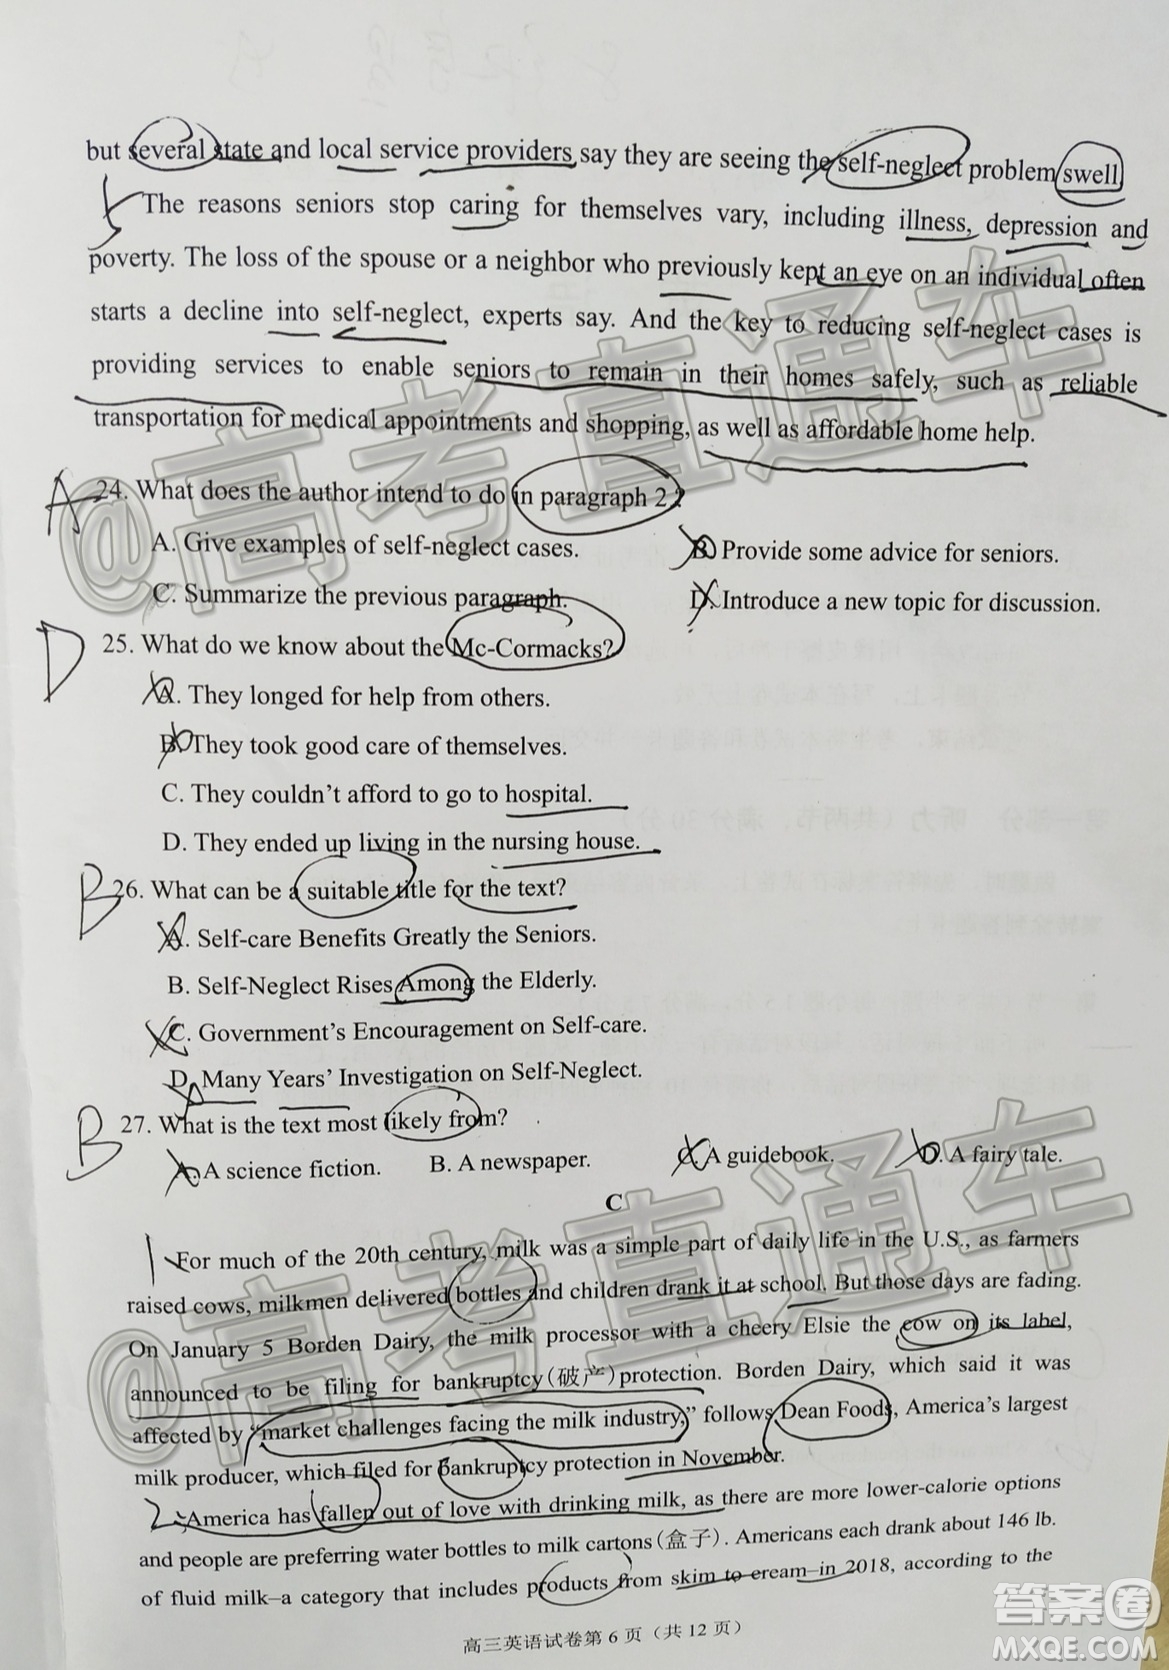 but several state and local service providers say they are seeing the self-neglect problem swell.
The reasons seniors stop caring for themselves vary, including illness, depression and
poverty. The loss of the spouse or a neighbor who previously kept an eye on an individual often
starts a decline into self-neglect, experts say. And the key to reducing self-neglect cases is
providing services to enable seniors to remain in their homes safely, such as reliable
transportation for medical appointments and shopping, as well as affordable home help.
A 24. What does the author intend to do in paragraph 2?
A. Give examples of self-neglect cases. B. Provide some advice for seniors.
C. Summarize the previous paragraph. D. Introduce a new topic for discussion.
D 25. What do we know about the Mc-Cormacks?
A. They longed for help from others.
B. They took good care of themselves.
C. They couldn't afford to go to hospital.
D. They ended up living in the nursing house.
B 26. What can be a suitable title for the text?
A. Self-care Benefits Greatly the Seniors.
B. Self-Neglect Rises Among the Elderly.
C. Government's Encouragement on Self-care.
D. Many Years' Investigation on Self-Neglect.
B 27. What is the text most likely from?
A. A science fiction. B. A newspaper. C. A guidebook. D. A fairy tale.
C
1 For much of the 20th century, milk was a simple part of daily life in the U.S., as farmers
raised cows, milkmen delivered bottles and children drank it at school. But those days are fading.
On January 5 Borden Dairy, the milk processor with a cheery Elsie the cow on its label,
announced to be filing for bankruptcy(破产)protection. Borden Dairy, which said it was
affected by "market challenges facing the milk industry," follows Dean Foods, America's largest
milk producer, which filed for bankruptcy protection in November.
2 America has fallen out of love with drinking milk, as there are more lower-calorie options
and people are preferring water bottles to milk cartons(盒子). Americans each drank about 146 lb.
of fluid milk–a category that includes products from skim to cream–in 2018, according to the
高三英语试卷第 6 页（共 12 页）
@高考直通车
@高考直通车
答案圈
MXQE.COM